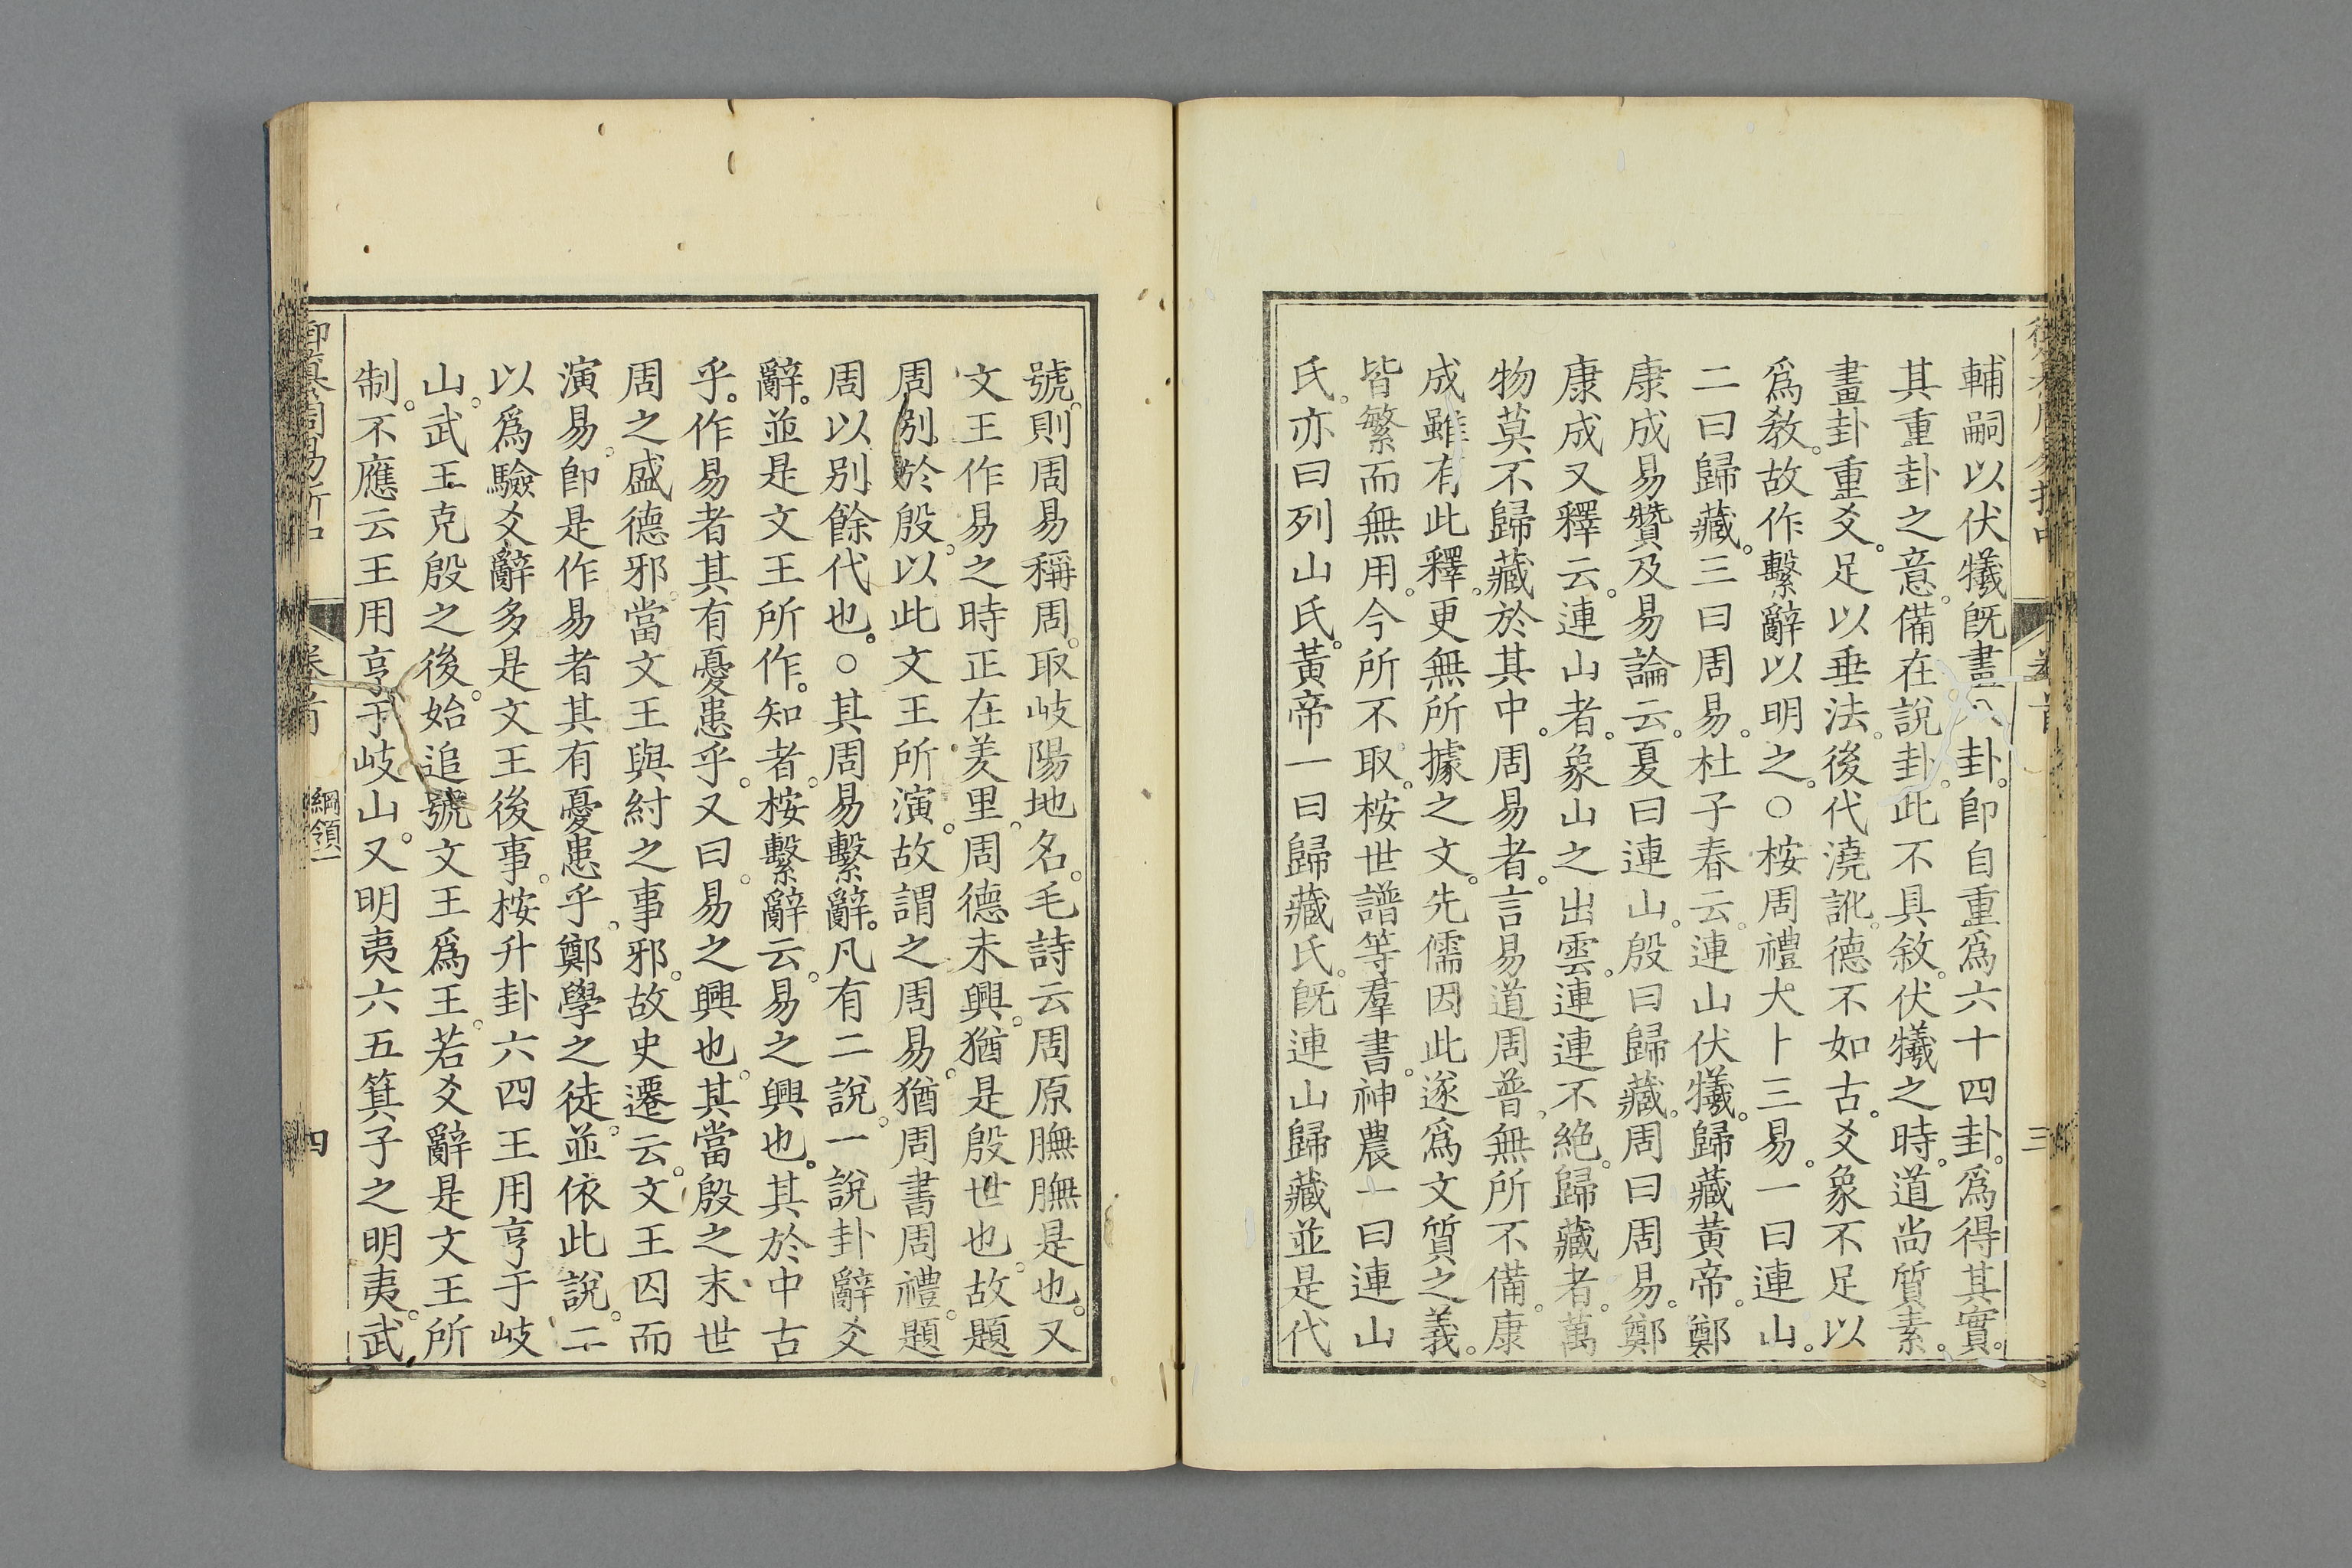 輔嗣以伏犧旣畫八卦。卽自重爲六十四卦。爲得其實。
其重卦之意。備在說卦。此不具敘。伏犧之時。道尚質素。
畫卦重爻。足以垂法。後代澆訛。德不如古。爻象不足以
爲敎。故作繫辭以明之。○桉周禮大卜三易。一曰連山。
二曰歸藏。三曰周易。杜子春云。連山伏犧。歸藏黃帝。鄭
康成易贊及易論云。夏曰連山。殷曰歸藏。周曰周易。鄭
康成又釋云。連山者。象山之出雲。連連不絕。歸藏者。萬
物莫不歸藏於其中。周易者。言易道周普。無所不備。康
成雖有此釋。更無所據之文。先儒因此遂爲文質之義。
皆繁而無用。今所不取。桉世譜等羣書。神農一曰連山
氏。亦曰列山氏。黃帝一曰歸藏氏。旣連山歸藏並是代
號。則周易稱周。取岐陽地名。毛詩云周原膴膴是也。又
文王作易之時。正在羑里。周德未興。猶是殷世也。故題
周別於殷。以此文王所演。故謂之周易。猶周書周禮。題
周以別餘代也。○其周易繫辭。凡有二說。一說卦辭爻
辭。並是文王所作。知者。桉繫辭云。易之興也。其於中古
乎。作易者其有憂患乎。又曰。易之興也。其當殷之末世
周之盛德邪。當文王與紂之事邪。故史遷云。文王囚而
演易。卽是作易者其有憂患乎。鄭學之徒。並依此說。二
以爲驗爻辭多是文王後事。桉升卦六四王用亨于岐
山。武王克殷之後。始追號文王爲王。若爻辭是文王所
制。不應云王用亨于岐山。又明夷六五箕子之明夷。武
御纂周易折中
卷首
綱領一
四